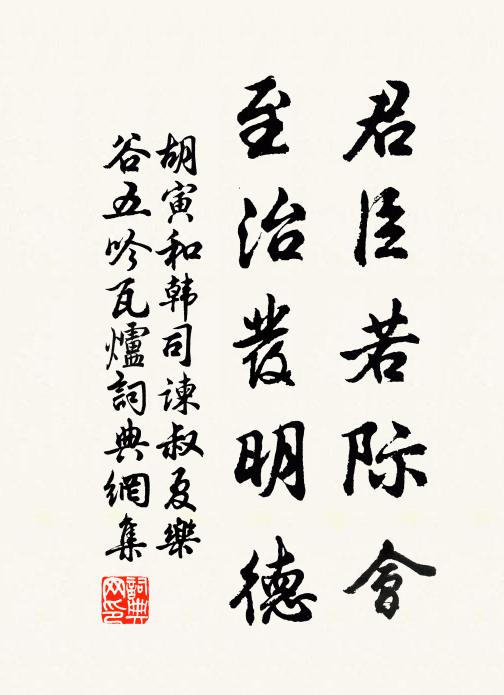 君臣若际會
至治發明德
胡寅和韩司諫叔夏樂
谷五吟瓦爐詞典網集
詞典網印